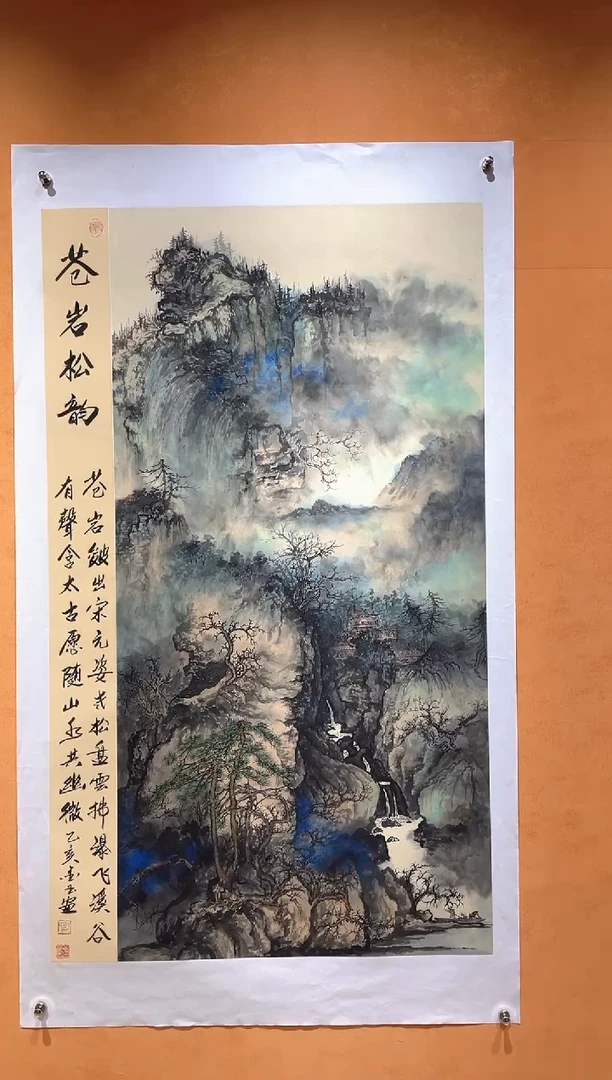 苍岩松韵
苍岩皴出宋元姿老松盘雲拂瀑飞溪谷
有聲含太古愿随山水共幽微乙亥